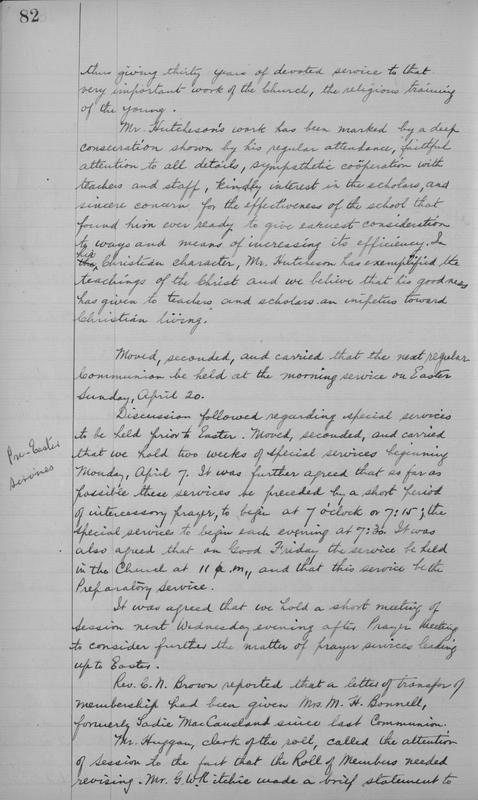 82
thus giving thirty years of devoted service to that
very important work of the Church, the religious training
of the young.
Mr. Hutcheson's work has been marked by a deep
consecration shown by his regular attendance, faithful
attention to all details, sympathetic coöperation with
teachers and staff, kindly interest in the scholars, and
sincere concern for the effectiveness of the school that
found him ever ready to give earnest consideration
to ways and means of increasing its efficiency. In
his Christian character, Mr. Hutcheson has exemplified the
teachings of the Christ and we believe that his goodness
has given to teachers and scholars an impetus toward
Christian living."
Moved, seconded, and carried that the next regular
Communion be held at the morning service on Easter
Sunday, April 20.
Discussion followed regarding special services
to be held prior to Easter. Moved, seconded, and carried
Pre-Easter
Services
that we hold two weeks of special services beginning
Monday, April 7. It was further agreed that so far as
possible these services be preceded by a short period
of intercessory prayer, to begin at 7 o'clock or 7:15; the
special services to begin each evening at 7:30. It was
also agreed that on Good Friday the service be held
in the Church at 11 a.m., and that this service be the
Preparatory Service.
It was agreed that we hold a short meeting of
Session next Wednesday evening after Prayer Meeting
to consider further the matter of prayer services leading
up to Easter.
Rev. C. N. Brown reported that a letter of transfer of
membership had been given Mrs. M. H. Bonnell,
formerly Sadie MacCausland since last Communion.
Mr. Huggan, clerk of the roll, called the attention
of Session to the fact that the Roll of Members needed
revising. Mr. G. W. Ritchie made a brief statement to